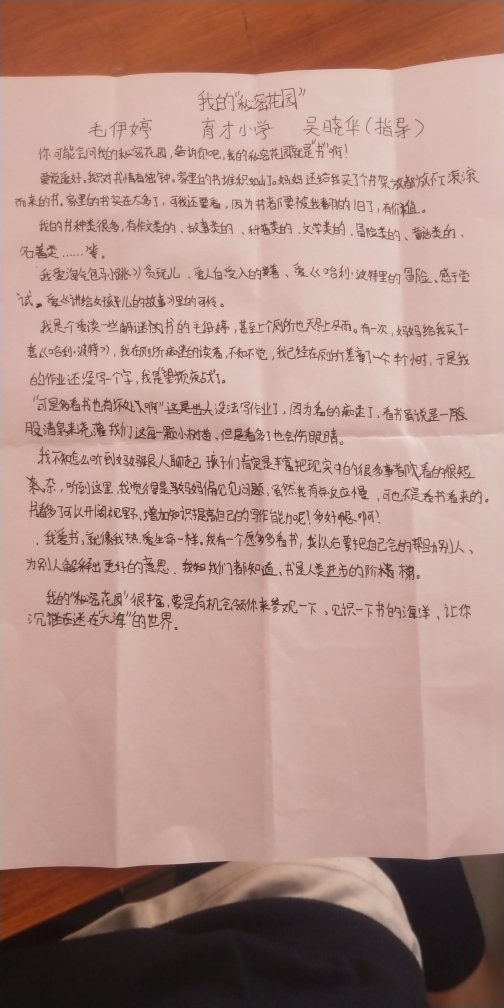 我的“秘密花园”
毛伊婷 育才小学 吴晓华(指导)
你可能会问我的秘密花园,告诉你吧,我的秘密花园就是“书”啊!
要说爱好,我只对书情有独钟。家里的书堆积如山了。妈妈还给我买了个书架放都放不下滚滚
而来的书。家里的书实在太多了,可我还要看,因为书都要被我翻的旧了,有价值。
我的书种类很多,有作文类的、故事类的、种着类的、文学类的、冒险类的、童话类的、
名著类……等。
我爱淘气包马小跳》贪玩儿、爱人自受入的、爱《哈利·波特里的冒险、感于尝
试。爱《讲给女孩子儿的故事》里的可怜。
我是个爱读一些解谜的书的毛伊婷,甚至上个厕所也天昏上昏而。有一次,妈妈给我买了一
套《哈利·波特》,我在厕所痴迷的读着,不知不觉,我已经在厕所差章了一个半个小时,于是我
的作业还没写一个字,我是要烦夜战了。
“可是多看书也有坏处啊”这是出人没法写作业了,因为看的痴迷了,看书虽说是一股
股清泉来浇灌我们这每一颗小树苗,但是看多了也会伤眼睛。
我不知怎么听到妈妈跟人聊起,孩子们肯定是丰富把现实中的很多事都阶看的很短
杂,听到这里,我觉得是妈妈偏见问题,虽然我有些反应慢,可也不是看书看来的。
书看多可以开阔视野,增加知识提高自己的写作能力呢?多好啊!
我爱书,就像我热爱生命一样。我有一个愿多多看书,我以后要把自己会的帮助别人、
为别人解释出更好的意思、我知我们都知道,书是人类进步的阶梯。
我的“秘密花园”很丰富,要是有机会领你来参观一下、见识一下书的海洋、让你
沉迷在“大海”的世界。